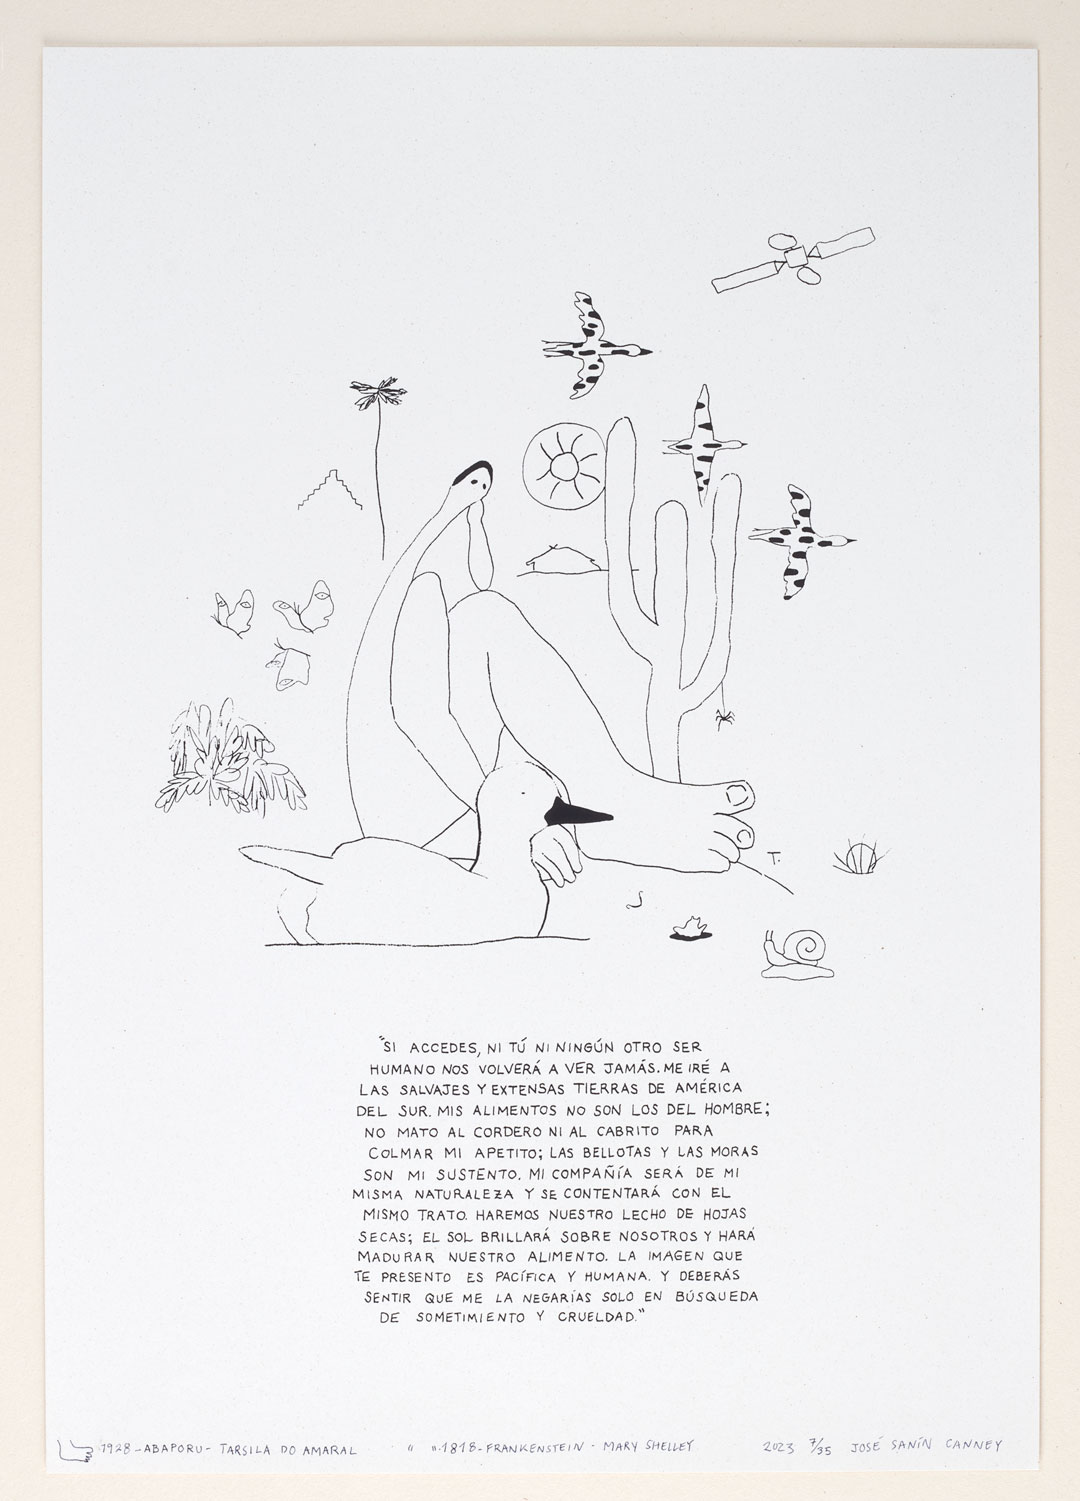 T.
"SI ACCEDES, NI TÚ NI NINGÚN OTRO SER
HUMANO NOS VOLVERÁ A VER JAMÁS. ME IRÉ A
LAS SALVAJES Y EXTENSAS TIERRAS DE AMÉRICA
DEL SUR. MIS ALIMENTOS NO SON LOS DEL HOMBRE;
NO MATO AL CORDERO NI AL CABRITO PARA
COLMAR MI APETITO; LAS BELLOTAS Y LAS MORAS
SON MI SUSTENTO. MI COMPAÑÍA SERÁ DE MI
MISMA NATURALEZA Y SE CONTENTARÁ CON EL
MISMO TRATO. HAREMOS NUESTRO LECHO DE HOJAS
SECAS; EL SOL BRILLARÁ SOBRE NOSOTROS Y HARÁ
MADURAR NUESTRO ALIMENTO. LA IMAGEN QUE
TE PRESENTO ES PACÍFICA Y HUMANA. Y DEBERÁS
SENTIR QUE ME LA NEGARÍAS SOLO EN BÚSQUEDA
DE SOMETIMIENTO Y CRUELDAD."
1928-ABAPORU-TARSILA DO AMARAL " ".1818-FRANKENSTEIN-MARY SHELLEY 2023 7/35 JOSÉ SANÍN CANNEY